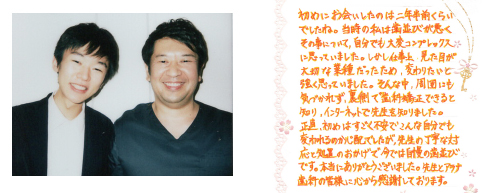 初めにお会いしたのは二年半前くらい
でしたね。当時の私は歯並びが悪く
その事について、自分でも大変コンプレックス
に思っていました。しかし仕事上、見た目が
大切な業種だったため、変わりたいと
強く思っていました。そんな中、周囲にも
気づかれず、裏側で歯科矯正できると
知り、インターネットで先生を知りました。
正直、初めはすごく不安でこんな自分でも
変われるのか心配でしたが、先生の丁寧な対
応と知道のおかげで今では自慢の歯並び
です。本当にありがとうございました。先生とアクア
歯科の皆様に心から感謝しております。